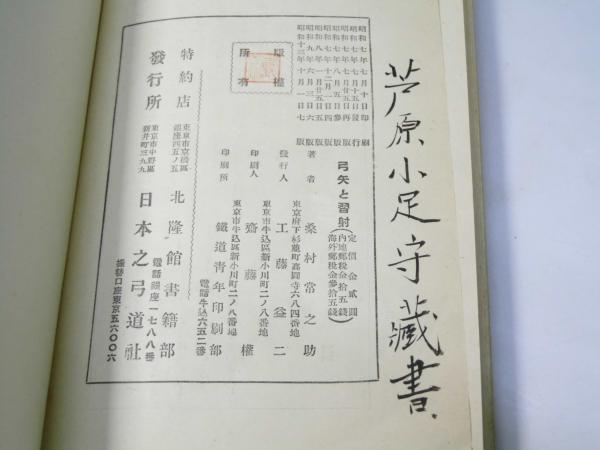 芦原小足守藏書
昭和七年七月十日印刷
昭和七年七月十五日發行
昭和七年七月廿五日再版
昭和七年八月五日參版
昭和七年十二月一日四版
昭和八年一月廿五日五版
昭和九年六月三日六版
昭和十三年十月一日七版
版權
所有
弓矢と習射
定價金貳圓
內地郵稅金拾五錢
海外郵稅金參拾五錢
著者 桑村常之助
東京府下杉並町高圓寺六八四番地
發行人 工藤益二
東京市牛込區新小川町二ノ八番地
印刷人 齋藤權
東京市牛込區新小川町二ノ八番地
印刷所 鐵道靑年印刷部
電話牛込六五二番
特約店 東京市京橋區銀座四五ノ五 北隆館書籍部
電話銀座一七八八番
發行所 東京市中野區新井町三九九 日本之弓道社
振替口座東京五六〇〇六